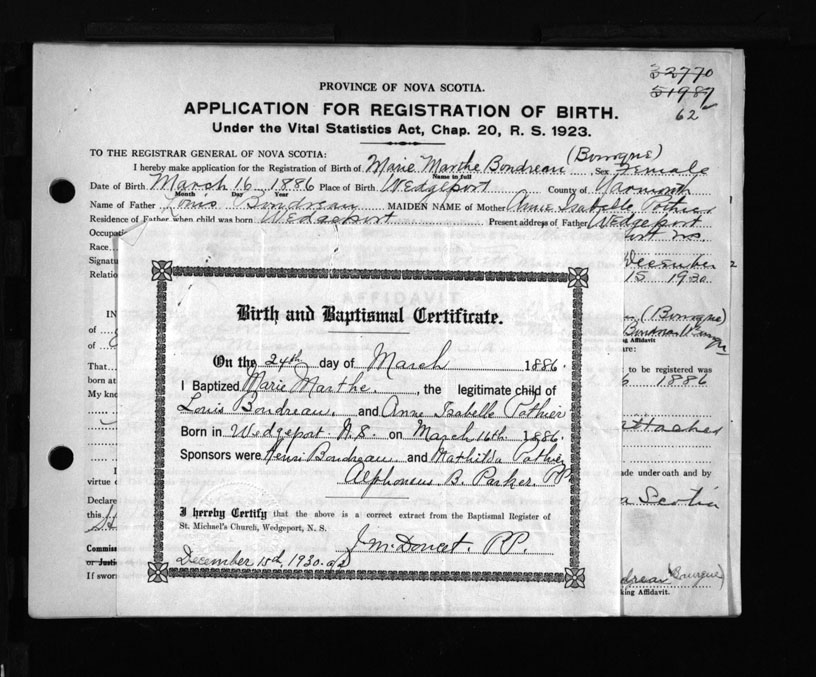 32770
51987
62
PROVINCE OF NOVA SCOTIA.
APPLICATION FOR REGISTRATION OF BIRTH.
Under the Vital Statistics Act, Chap. 20, R. S. 1923.
TO THE REGISTRAR GENERAL OF NOVA SCOTIA:
(Bourque)
I hereby make application for the Registration of Birth of Marie Marthe Boudreau Sex Female
Name in full
Date of Birth March 16 1886 Place of Birth Wedgeport County of Yarmouth
Month Day Year
Name of Father Louis Boudreau MAIDEN NAME of Mother Annie Isabelle Pothier
Residence of Father when child was born Wedgeport Present address of Father Wedgeport
Occupati
Race
Signatu December
Relatio 15 1930
IN (Bourque)
of
of
king Affidavit
are:
That to be registered was
born at 1886
My kno
attached
I ade under oath and by
virtue o
Declare a Scotia
this
Commiss
or Justi
If sworn
dreau (Bourque)
king Affidavit.
Birth and Baptismal Certificate.
On the 24th day of March 1886.
I Baptized Marie Marthe, the legitimate child of
Louis Boudreau, and Anne Isabelle Pothier
Born in Wedgeport N.S. on March 16th 1886.
Sponsors were Henri Boudreau and Mathilda Pothier
Alphonsus B. Parker. PP
I hereby Certify that the above is a correct extract from the Baptismal Register of
St. Michael's Church, Wedgeport, N. S.
J. M. Doucet. P.P.
December 15th, 1930.